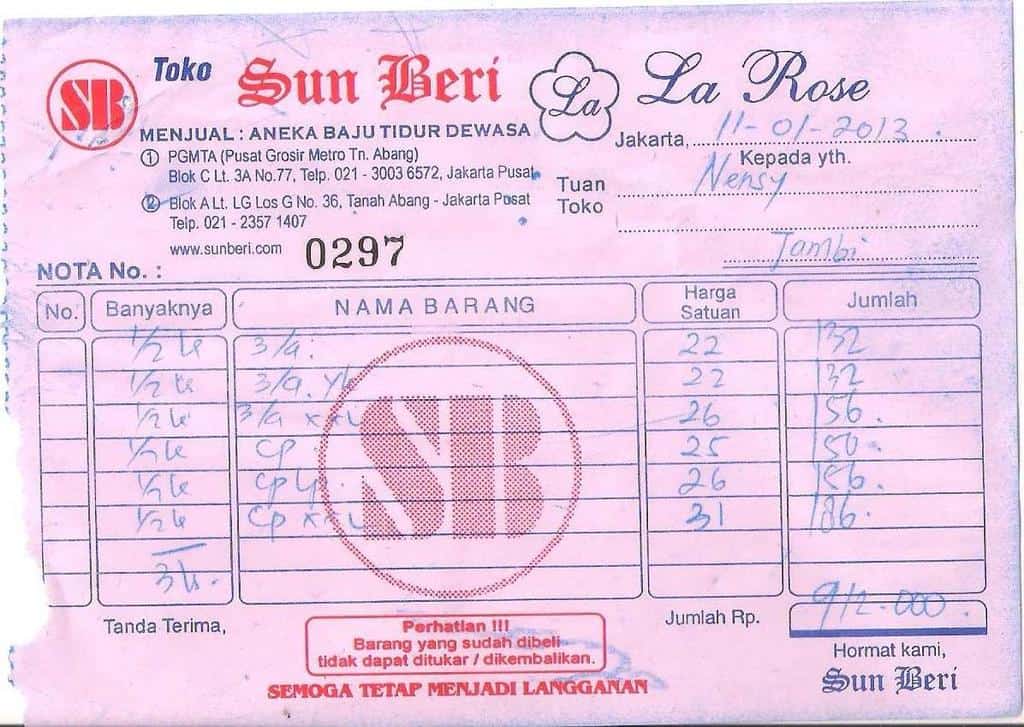 SB Toko Sun Beri La La Rose
MENJUAL : ANEKA BAJU TIDUR DEWASA
Jakarta, 11-01-2013.
① PGMTA (Pusat Grosir Metro Tn. Abang)
Kepada yth.
Blok C Lt. 3A No.77, Telp. 021 - 3003 6572, Jakarta Pusat
Tuan Nensy
② Blok A Lt. LG Los G No. 36, Tanah Abang - Jakarta Pusat
Toko
Telp. 021 - 2357 1407
www.sunberi.com
Jambi
NOTA No. : 0297
No. Banyaknya NAMA BARANG Harga Satuan Jumlah
1/2 3/a. 22 132
1/2 3/a. 22 132
1/2 3/a 26 156.
1/2 Cp 25 150.
1/2 Cp 26 156.
1/2 Cp 31 186.
3
SB
Tanda Terima,
Jumlah Rp. 912.000.
Perhatian !!!
Barang yang sudah dibeli
tidak dapat ditukar / dikembalikan.
SEMOGA TETAP MENJADI LANGGANAN
Hormat kami,
Sun Beri